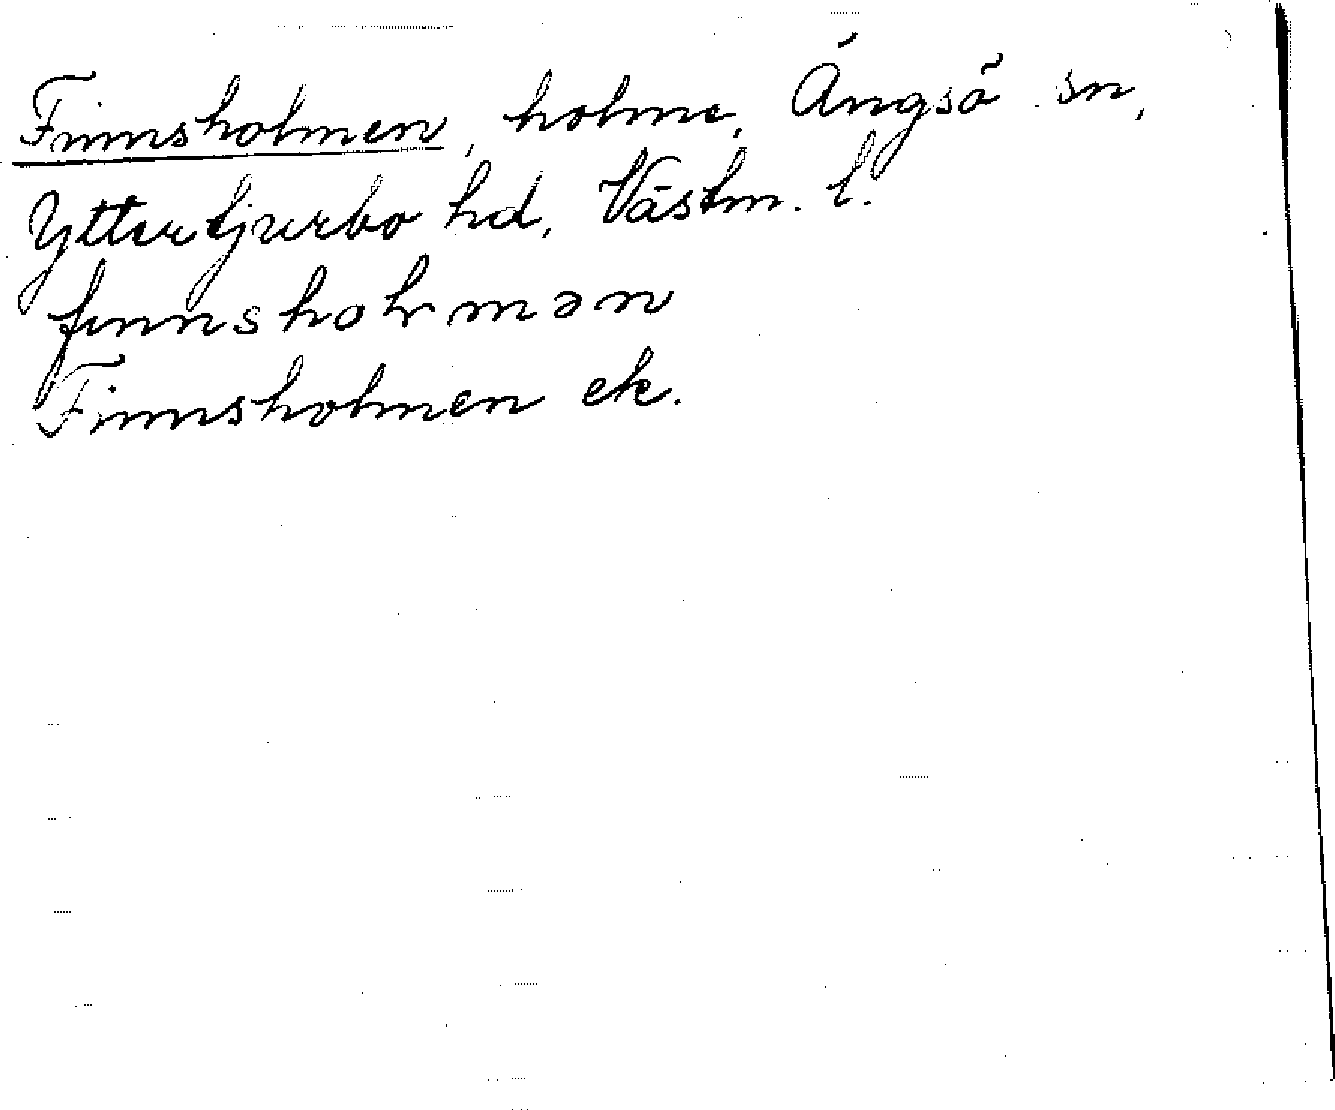 Finnsholmen, holme, Ängsö sn,
Yttertjurbo hd, Västm. l.
finnshoɫmən
Finnsholmen ek.